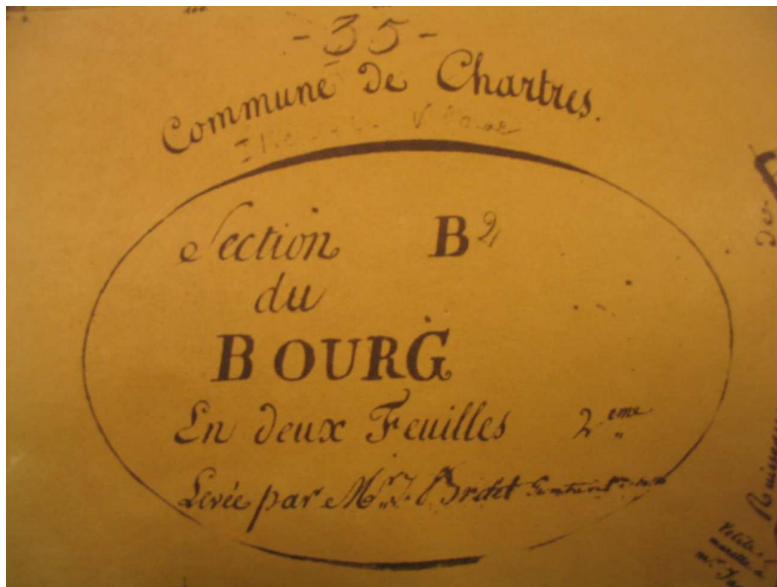 - 35 -
Commune de Chartres.
Section B2
du
BOURG
En deux Feuilles 2eme
Levée par Mr. J.